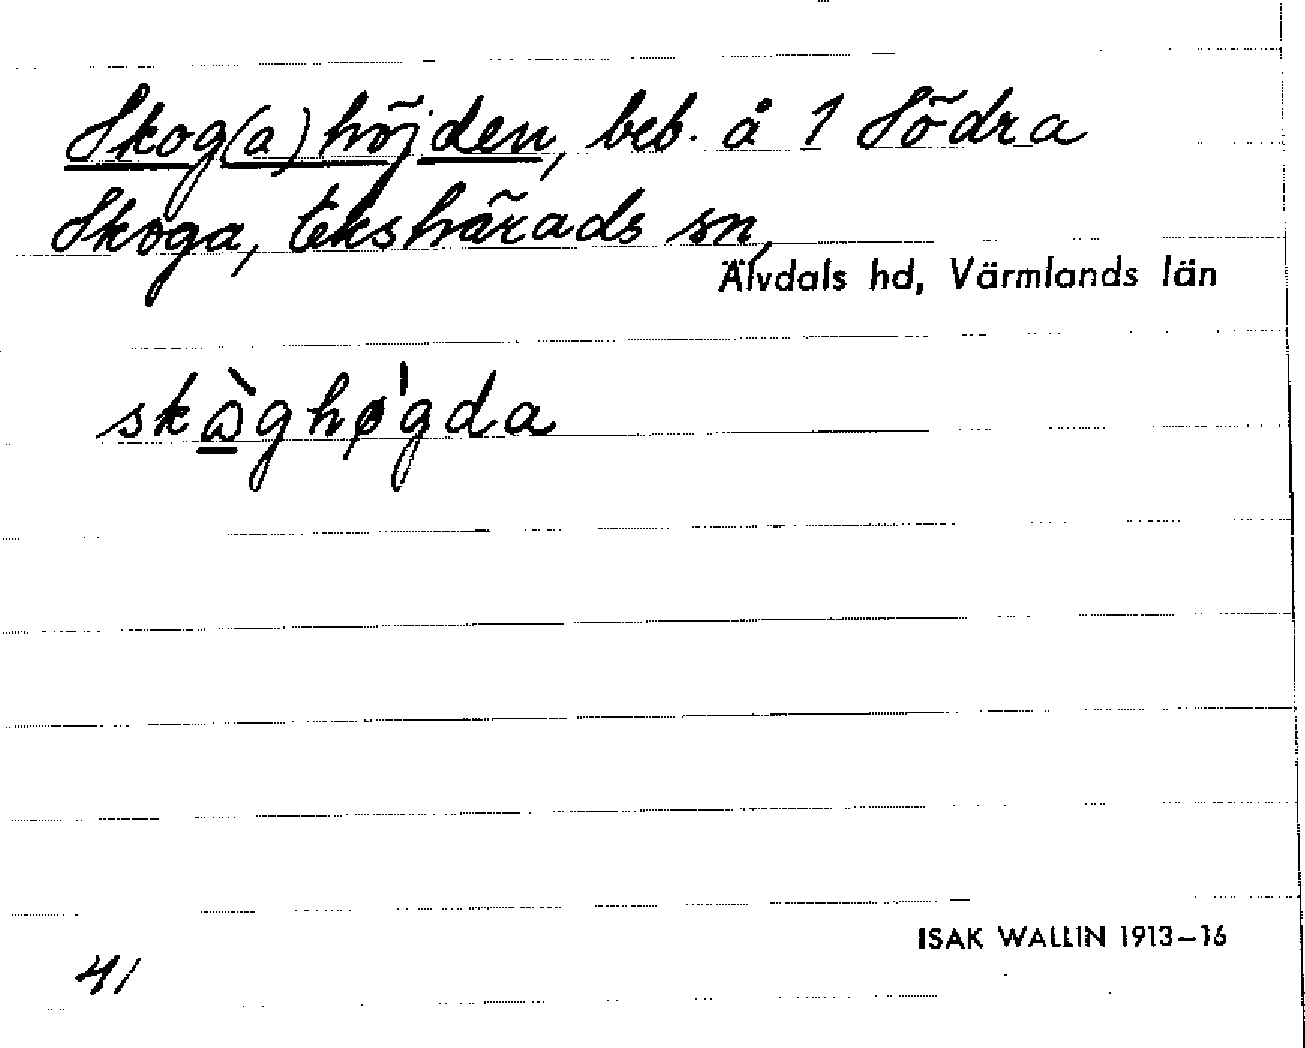 Skog(a)höjden, beb. å 1 Södra
Skoga, Ekshärads sn,
Älvdals hd, Värmlands län
skὼghø̍gda
ISAK WALLIN 1913–16
41